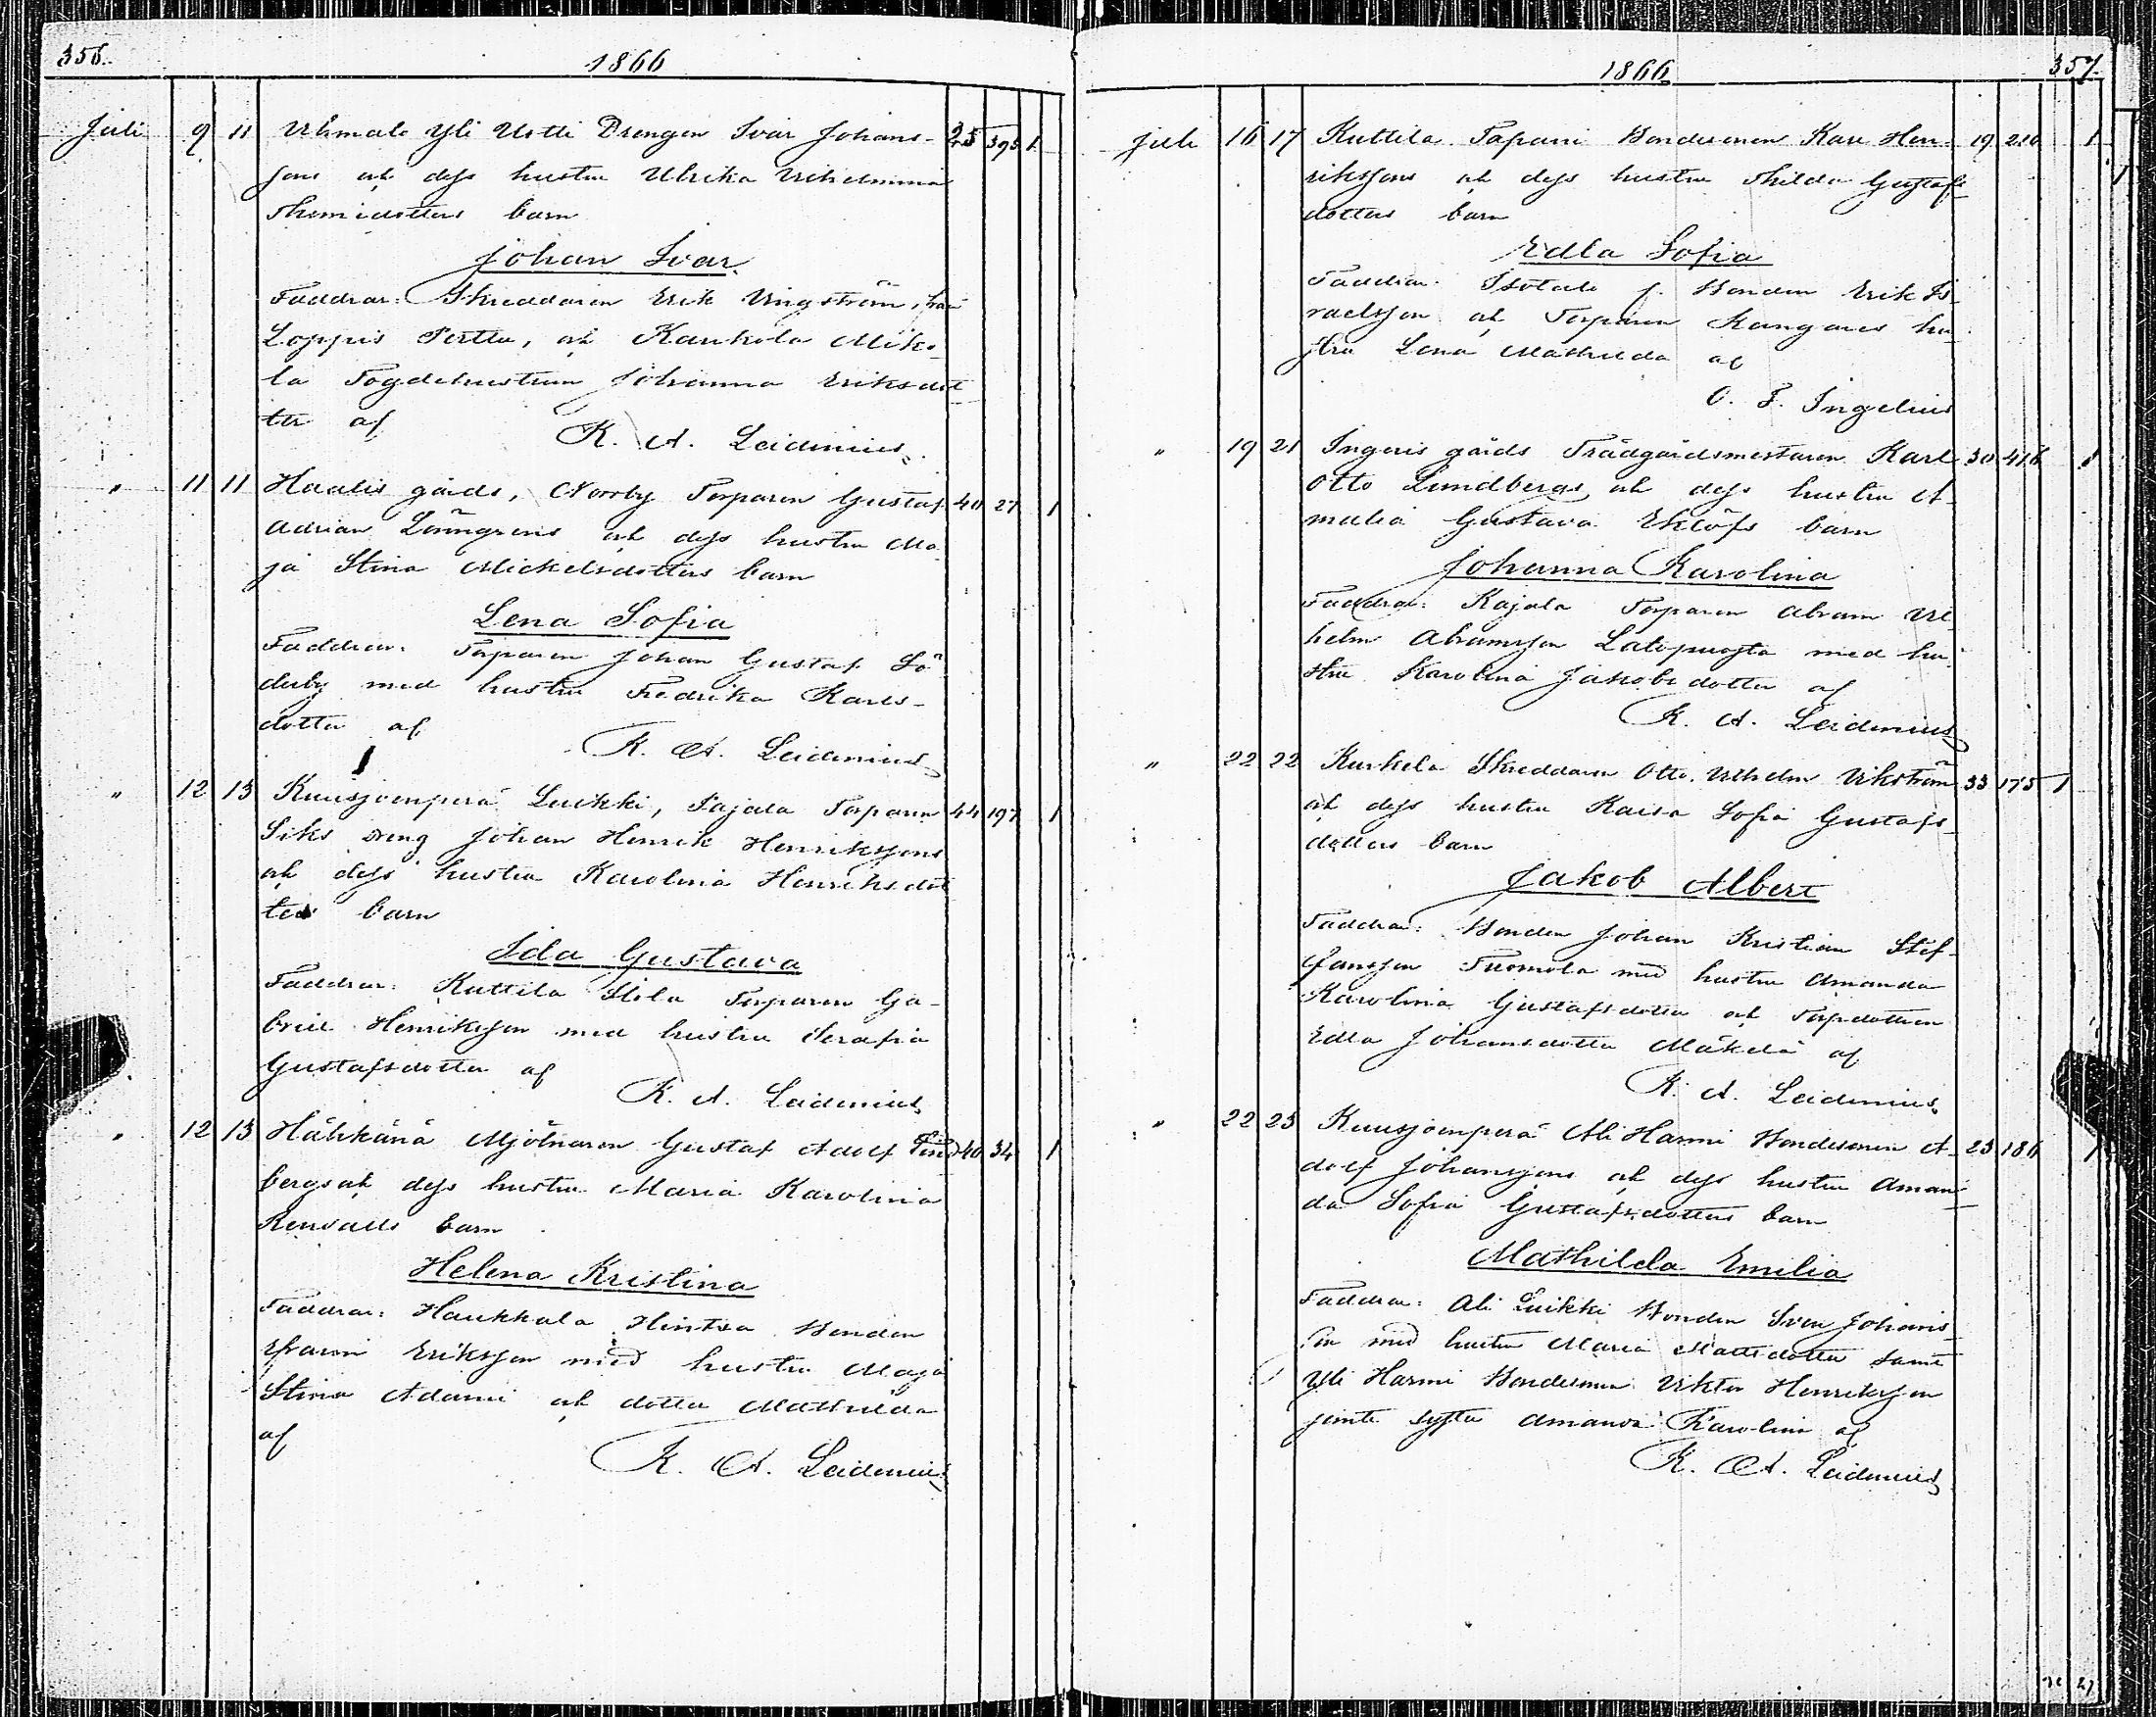 356.
1866
Juli 9 11 Uhmalo Yli Uotti Drengen Ivar Johans- 25 395 1
sons och dess hustru Ulrika Vilhelmina
Themidotters barn
Johan Ivar.
Faddrar: Skreddaren Erik Vingström, från
Loppis Perttu, och Kankola Miko-
la Fogdehustrun Johanna Eriksdot
ter af K. A. Leidenius.
" 11 11 Haalis gårds, Norrby Torparen Gustaf 40 27 1
Adrian Lönngrens och dess hustru Ma
ja Stina Mickelsdotters barn
Lena Sofia
Faddrar: Torparen Johan Gustaf Sö
derby med hustru Fredrika Karls-
dotter af
K. A. Leidenius
" 12 13 Kuusjoenperä Luikki, Pajala Torparen 44 197 1
Siks dreng Johan Henrik Henrikssons
och dess hustru Karolina Henriksdot
ters barn
Ida Gustava
Faddrar: Kuttila Torparen Ga-
briel Henriksson med hustru Serafia
Gustafsdotter af
K. A. Leidenius
" 12 13 Hähkänä Mjölnaren Gustaf Adolf Lind 40 34 1
bergs och dess hustru Maria Karolina
Renvalls barn
Helena Kristina
Faddrar: Haukkala Hintsa Bonden
Efraim Eriksson med hustru Maja
Stina Adami och dotter Mathilda
af K. A. Leidenius
1866
357.
Juli 16 17 Kuttila Tapani Bondesonen Karl Hen- 19 210 1
rikssons och dess hustru Thilda Gustafs
dotters barn
Edla Sofia
Faddrar: Isotalo f. Bonden Erik Is
raelsson och Torparen Kangares hu
stru Lena Mathilda af
O. F. Ingelius
" 19 21 Ingeris gårds Trädgårdsmestaren Karl 30 416 1
Otto Lundbergs och dess hustru A-
malia Gustava Eklöfs barn
Johanna Karolina
Faddrar: Kajala Torparen Abram Vil
helm Abramsson Latopuosta med hu
stru Karolina Jakobsdotter af
K. A. Leidenius
" 22 22 Kurkela Skreddaren Otto Vilhelm Vikström 33 175 1
och dess hustru Kaisa Sofia Gustafs-
dotters barn
Jakob Albert
Faddrar: Bonden Johan Kristian Stef-
fansson Tuomola med hustru Amanda
Karolina Gustafsdotter och Torpdottren
Edla Johansdotter Mäkelä af
K. A. Leidenius
" 22 23 Kuusjoenperä Ali Harmi Bondesonen A- 23 186 1
dolf Johanssons och dess hustru Aman
da Sofia Gustafsdotters barn
Mathilda Emilia
Faddrar: Ali Luikki Bonden Sven Johans
son med hustru Maria Mattsdotter samt
Yli Harmi Bondesonen Viktor Henriksson
jemte syster Amanda Karolina af
K. A. Leidenius